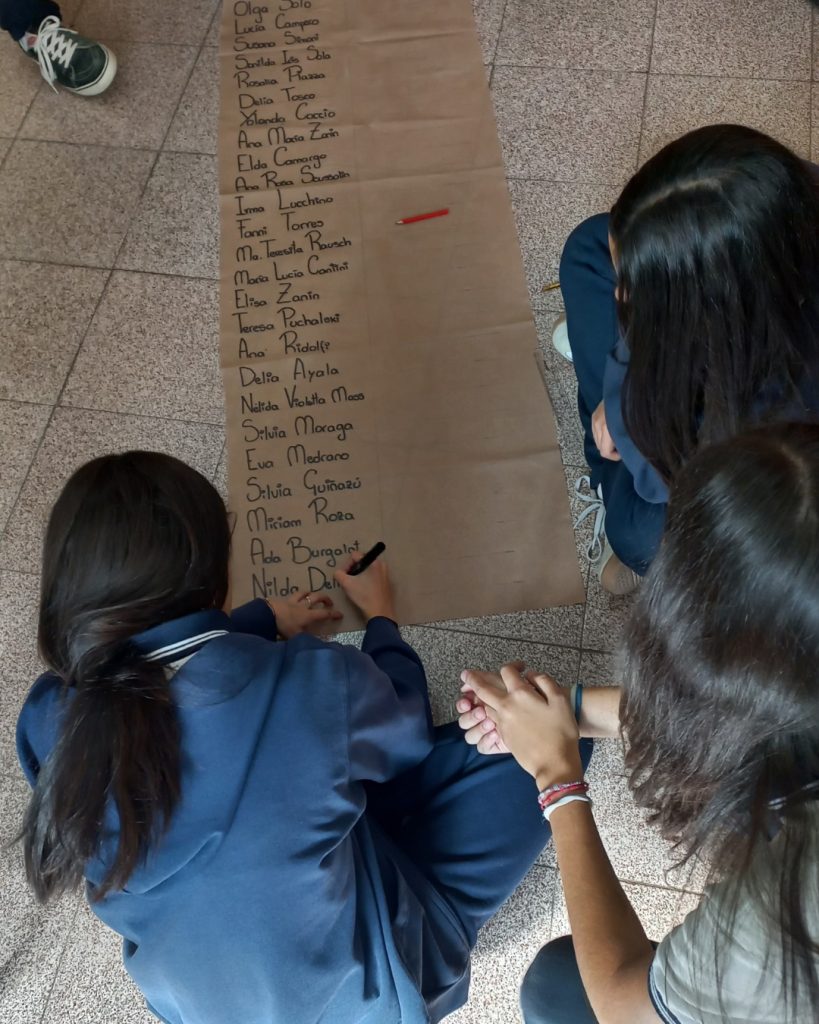 Olga Soto
Lucía Campero
Susana Simoni
Sonilda Inés Sola
Rosalia Piazza
Delia Tosco
Yolanda Coccio
Ana María Zarin
Elda Camargo
Ana Rosa
Irma Lucchino
Fanni Torres
Ma. Teresita Rausch
María Lucía Cantini
Elisa Zanin
Teresa Puchalski
Ana Ridolfi
Delia Ayala
Nélida Violetta Moss
Silvia Moraga
Eva Medrano
Silvia Guiñazú
Miriam Roza
Ada
Nilda